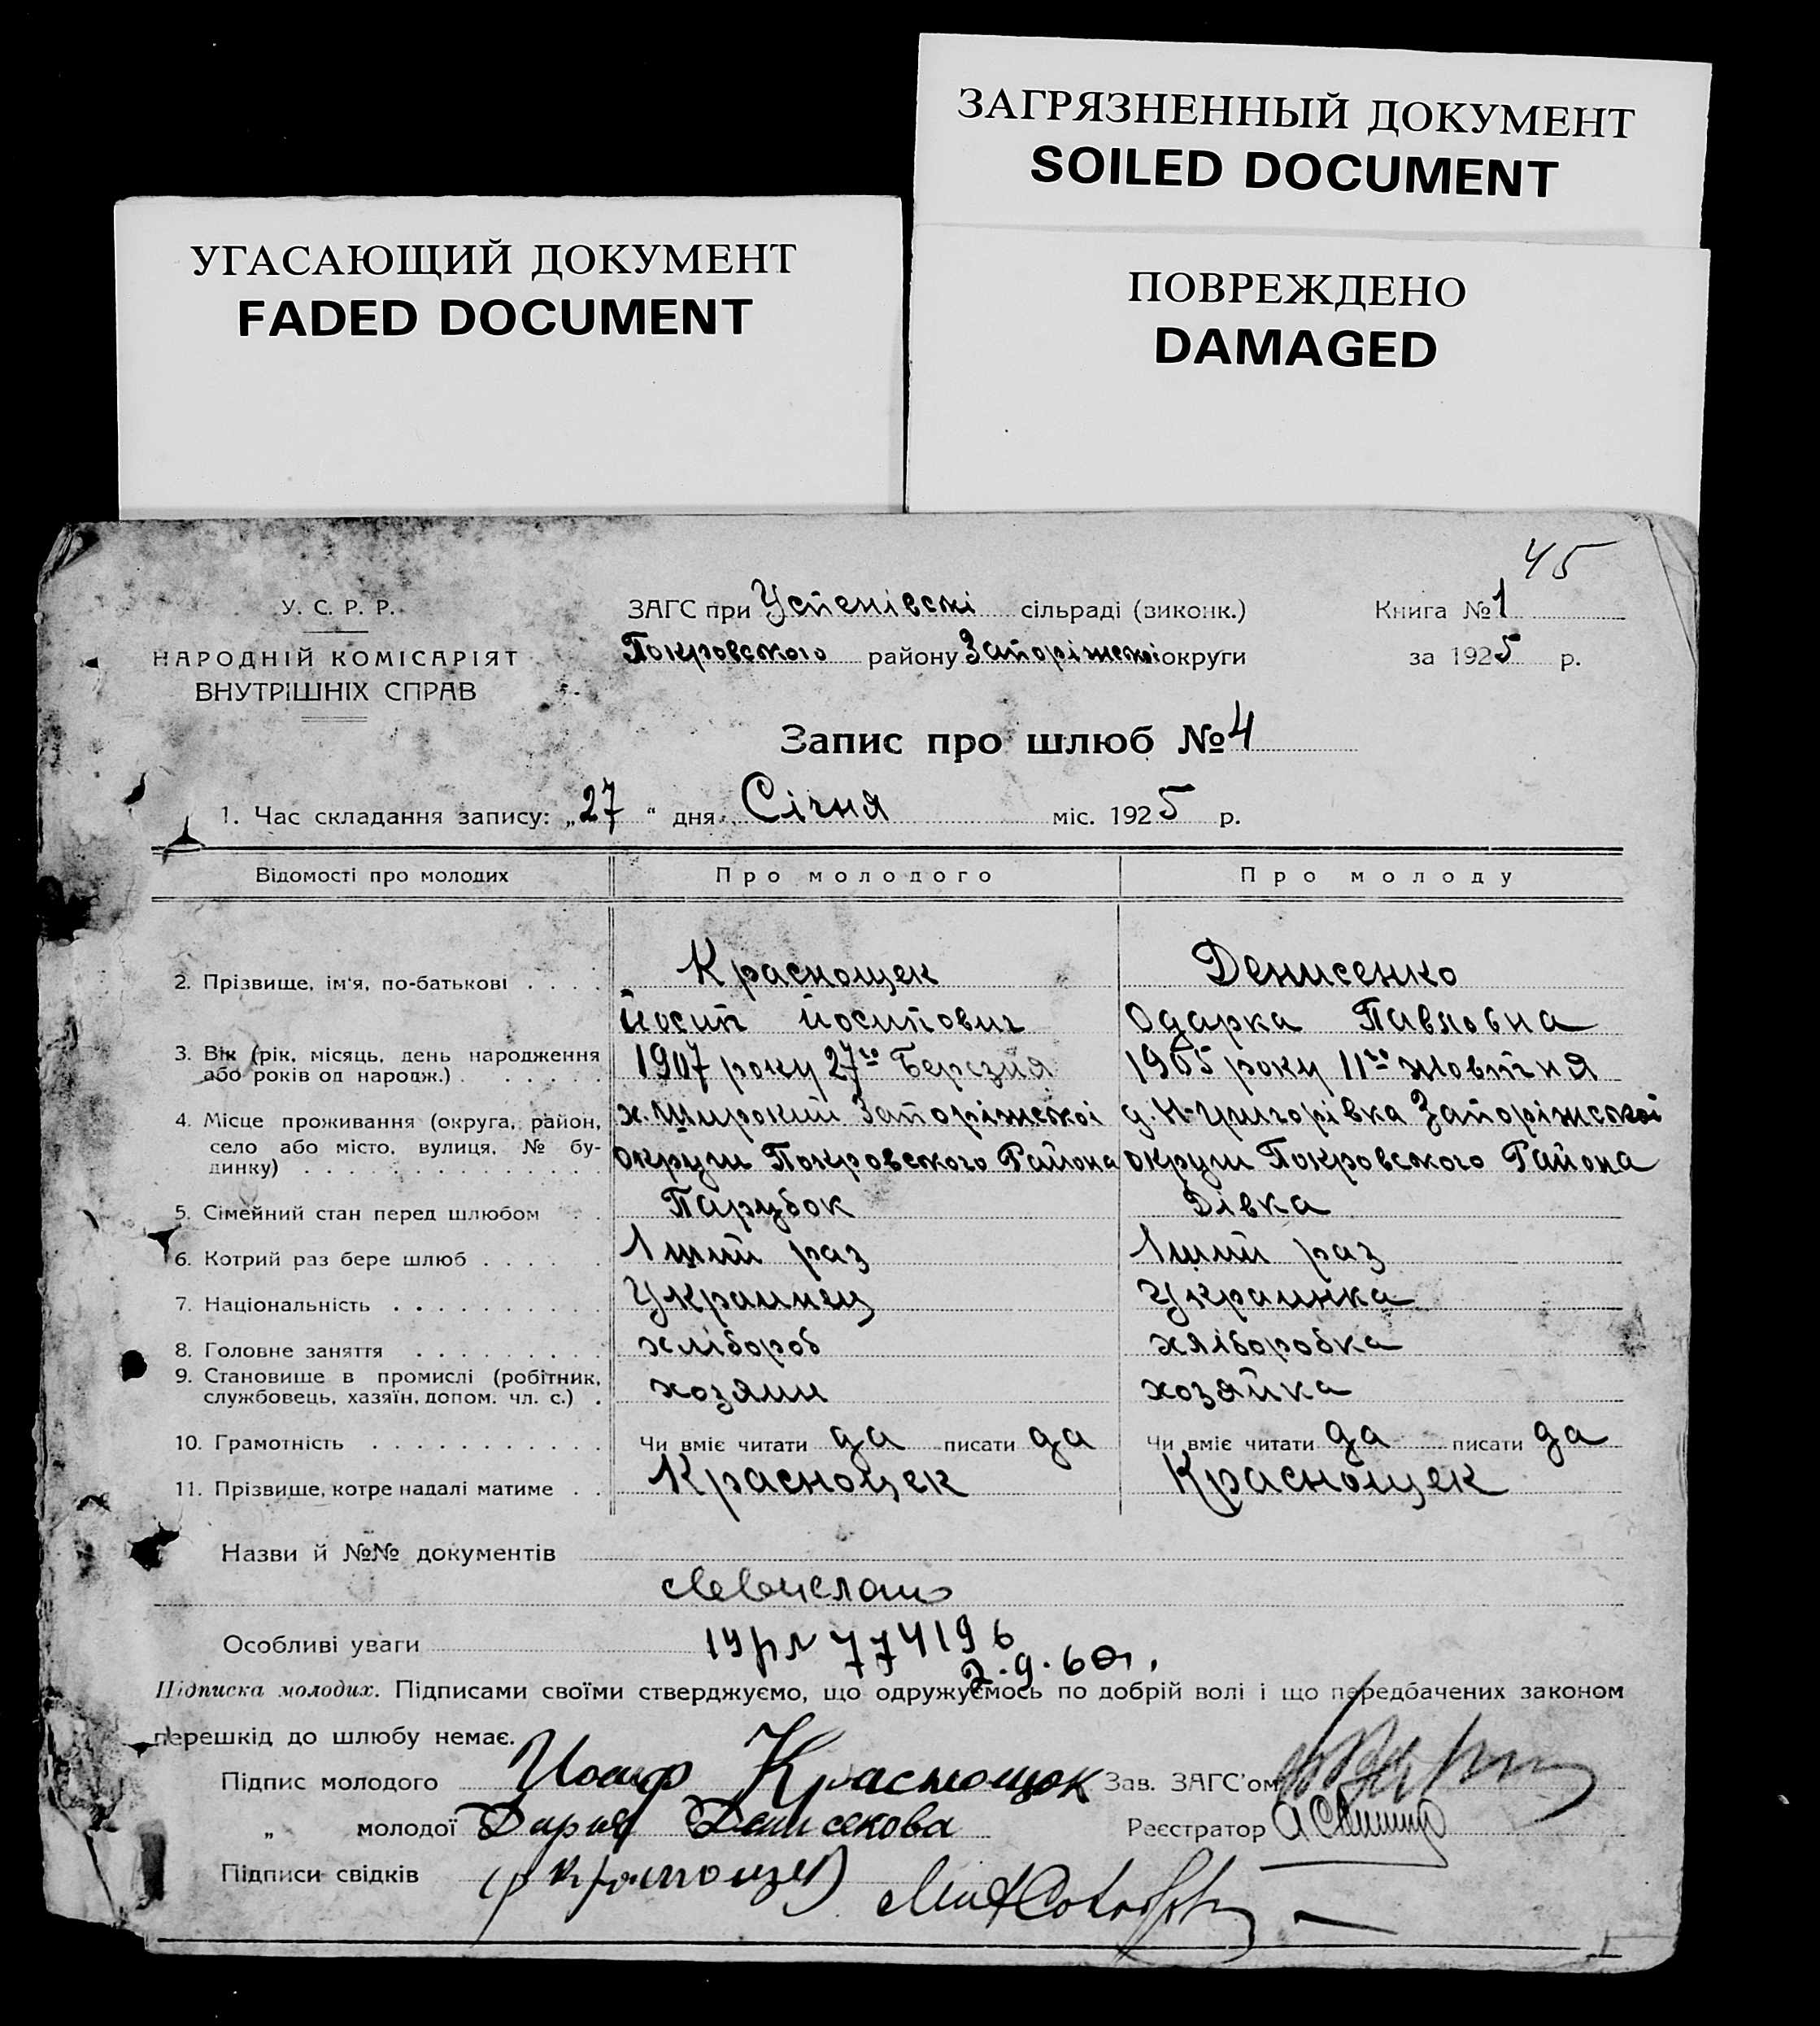 ЗАГРЯЗНЕННЫЙ ДОКУМЕНТ
SOILED DOCUMENT
УГАСАЮЩИЙ ДОКУМЕНТ
FADED DOCUMENT
ПОВРЕЖДЕНО
DAMAGED
45
У. С. Р. Р.
НАРОДНІЙ КОМІСАРІЯТ
ВНУТРІШНІХ СПРАВ
ЗАГС при Успенівскі сільраді (виконк.)
Покровского району Запоріжскоі округи
Книга № 1
за 1925 р.
Запис про шлюб № 4
1. Час складання запису: „27“ дня Січня міс. 1925 р.
Відомості про молодих Про молодого Про молоду
2. Прізвище, ім'я, по-батькові . . . . Краснощек Денисенко
Йосип Йосипович Одарка Павловна
3. Вік (рік, місяць, день народження 1907 року 27го Березня 1905 року 11го жовтня
або років од народж.) . . . . . .
4. Місце проживання (округа, район, х. Широкий Запоріжскоі д. Н-Григорівка Запоріжскоі
село або місто, вулиця, № бу- округи Покровского Района округи Покровского Района
динку) . . . . . . . . . . . . .
5. Сімейний стан перед шлюбом . . Парубок Дівка
6. Котрий раз бере шлюб . . . . . 1ший раз 1ший раз
7. Національність . . . . . . . . . . Украинец Украинка
8. Головне заняття . . . . . . . . . хлібороб хліборобка
9. Становище в промислі (робітник, хозяин хозяйка
службовець, хазяїн, допом. чл. с.) .
10. Грамотність . . . . . . . . . . . Чи вміє читати да писати да Чи вміє читати да писати да
11. Прізвище, котре надалі матиме . . Краснощек Краснощек
Назви й №№ документів
Особливі уваги 774196
2.9.60г.
Підписка молодих. Підписами своїми стверджуємо, що одружуємось по добрій волі і що передбачених законом
перешкід до шлюбу немає.
Підпис молодого Иосиф Краснощок Зав. ЗАГС'ом
„ молодої Дарья Денисекова Реєстратор
Підписи свідків